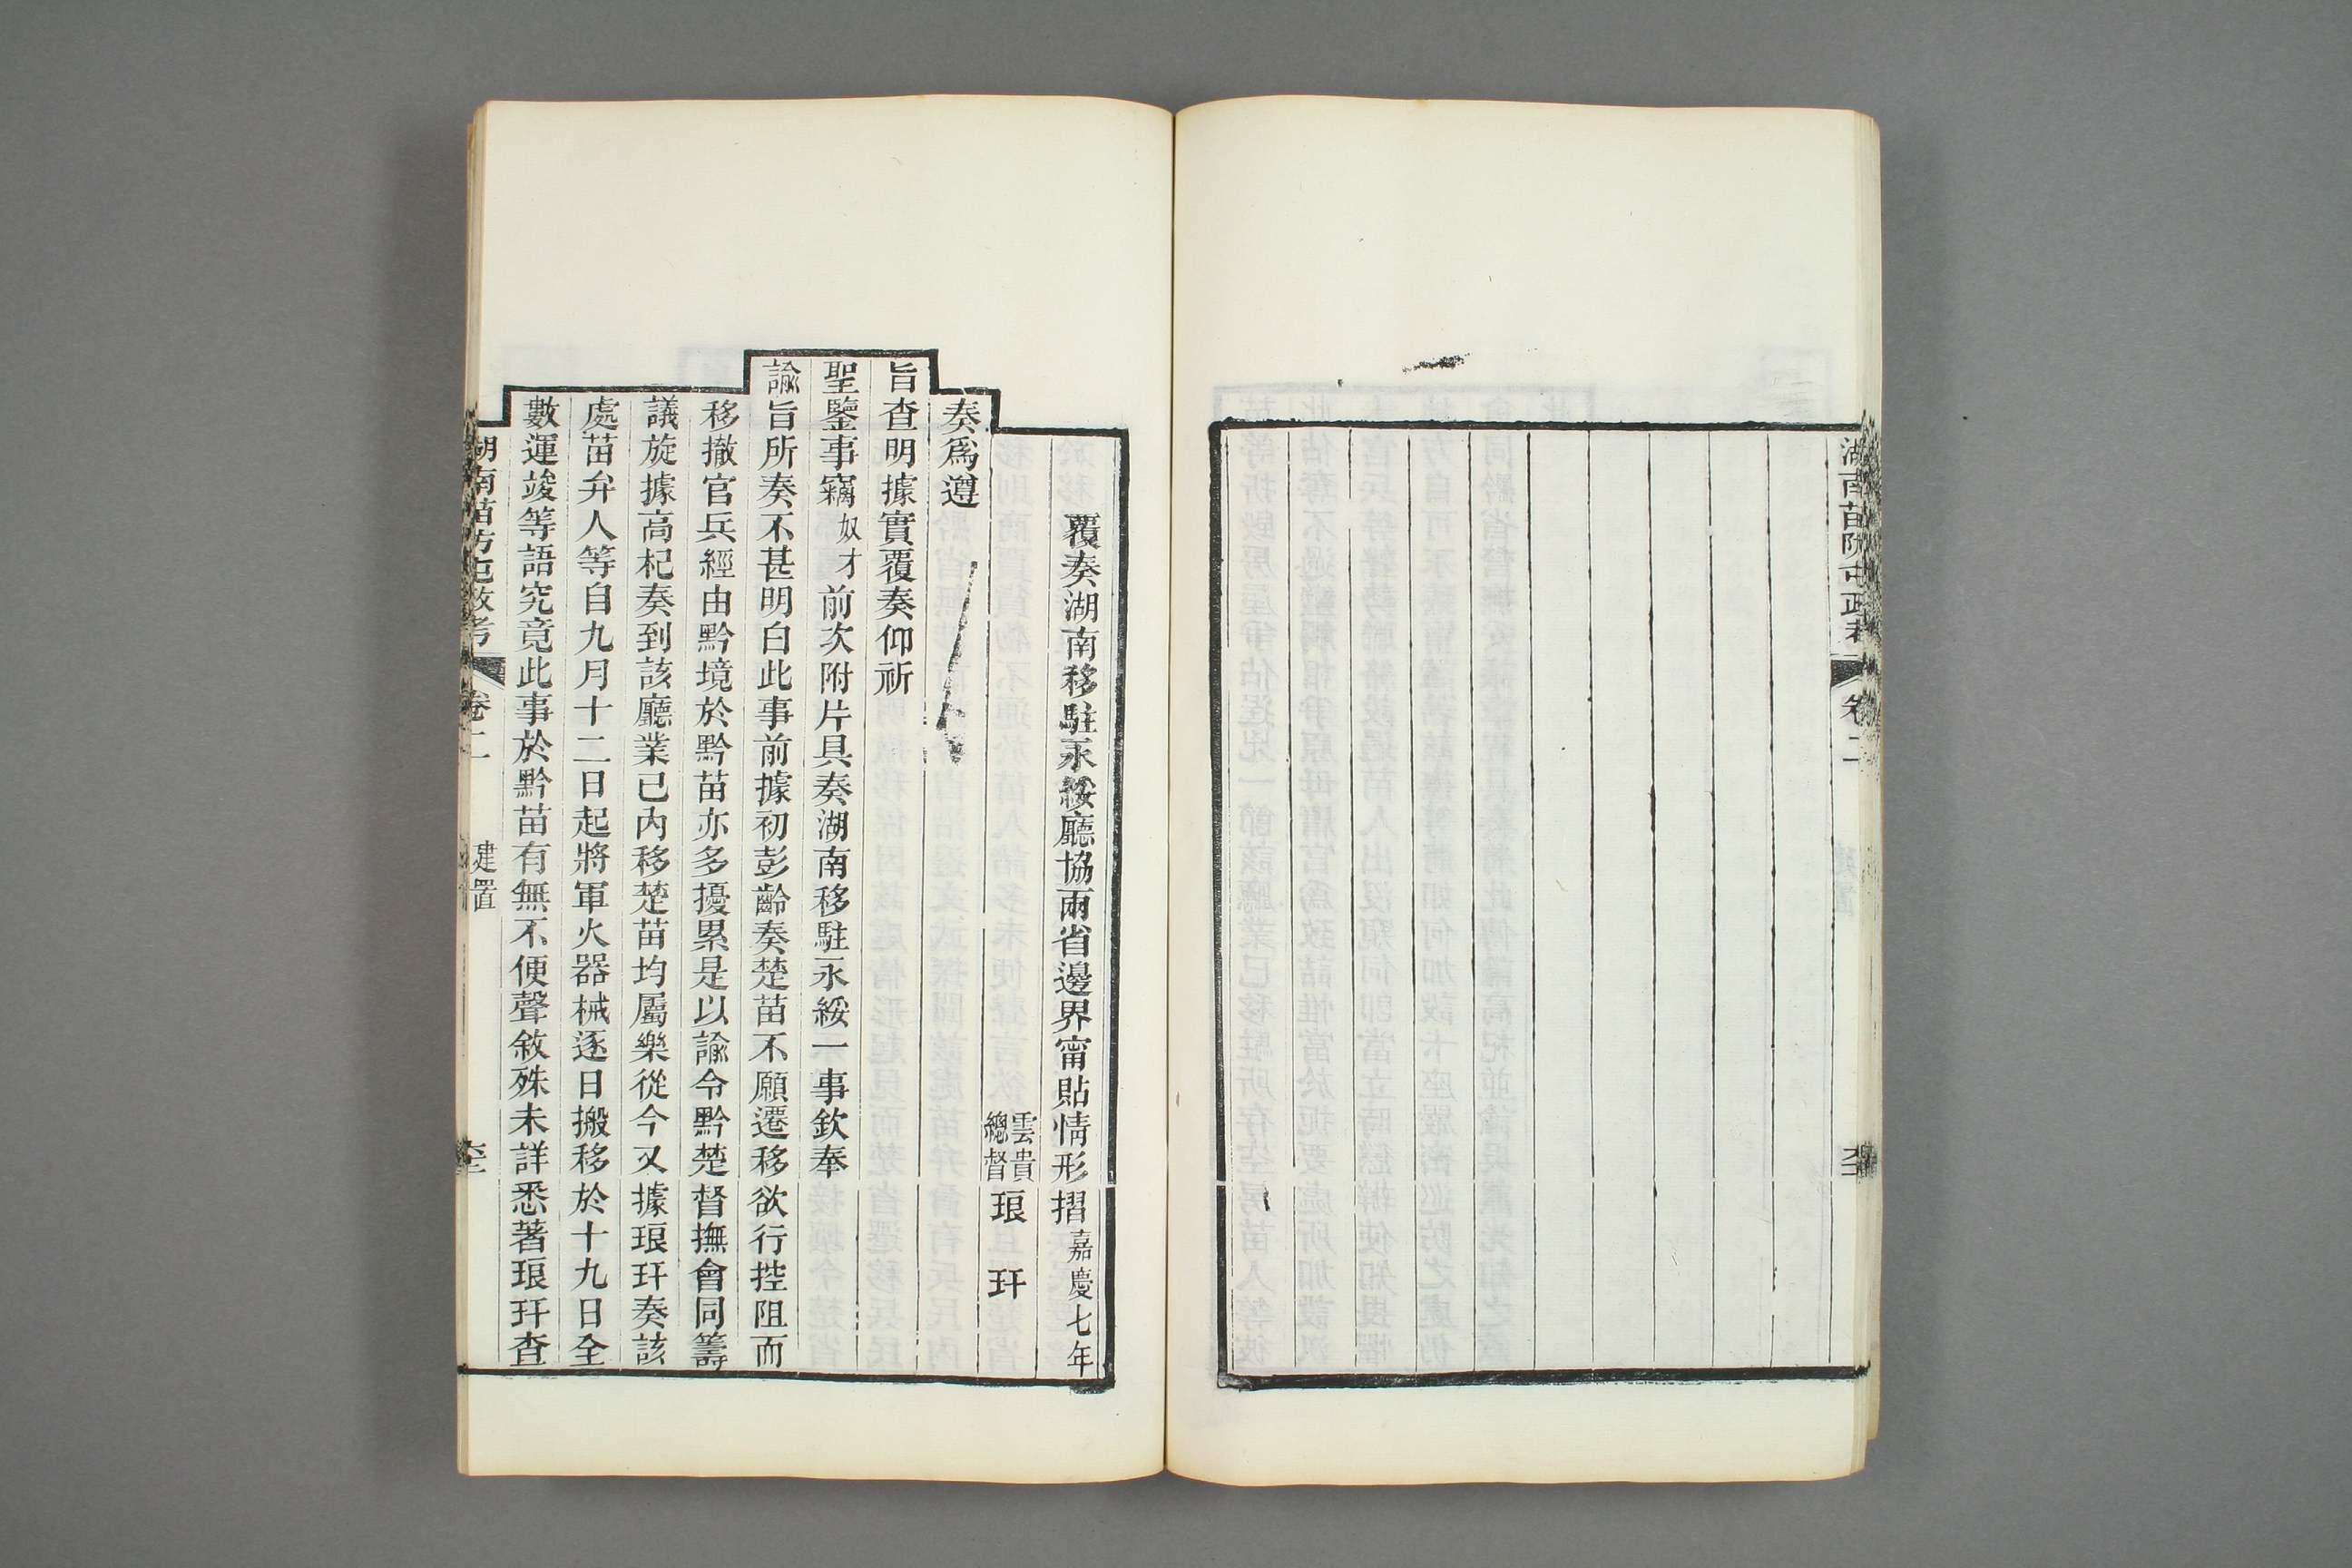 湖南苗防屯政考 卷二
覆奏湖南移駐永綏廳協兩省邊界甯貼情形摺 嘉慶七年
雲貴總督 琅玕
奏爲遵
旨查明據實覆奏仰祈
聖鑒事竊奴才前次附片具奏湖南移駐永綏一事欽奉
諭旨所奏不甚明白此事前據初彭齡奏楚苗不願遷移欲行控阻而
移撤官兵經由黔境於黔苗亦多擾累是以諭令黔楚督撫會同籌
議旋據高杞奏到該廳業已內移楚苗均屬樂從今又據琅玕奏該
處苗弁人等自九月十二日起將軍火器械逐日搬移於十九日全
數運竣等語究竟此事於黔苗有無不便聲敘殊未詳悉著琅玕查
湖南苗防屯政考 卷二 建置